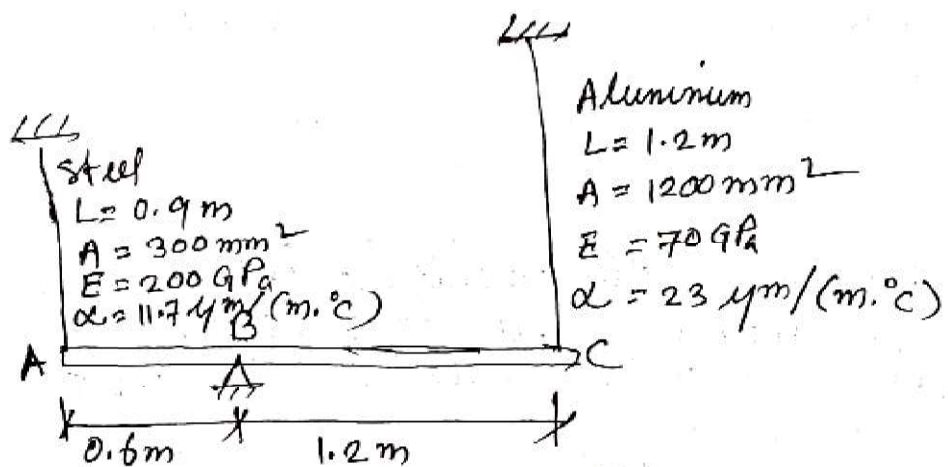 Steel
L = 0.9 m
A = 300 mm²
E = 200 GPa
α = 11.7 μm/(m.°C)
Aluminium
L = 1.2 m
A = 1200 mm²
E = 70 GPa
α = 23 μm/(m.°C)
A
B
C
0.6m
1.2 m